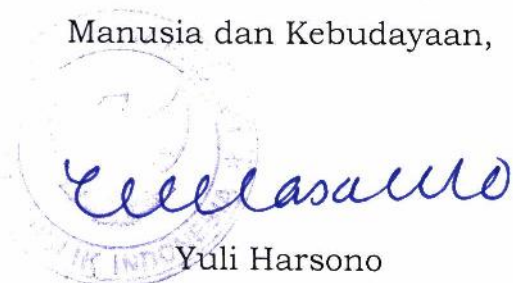 Manusia dan Kebudayaan,
Yuli Harsono